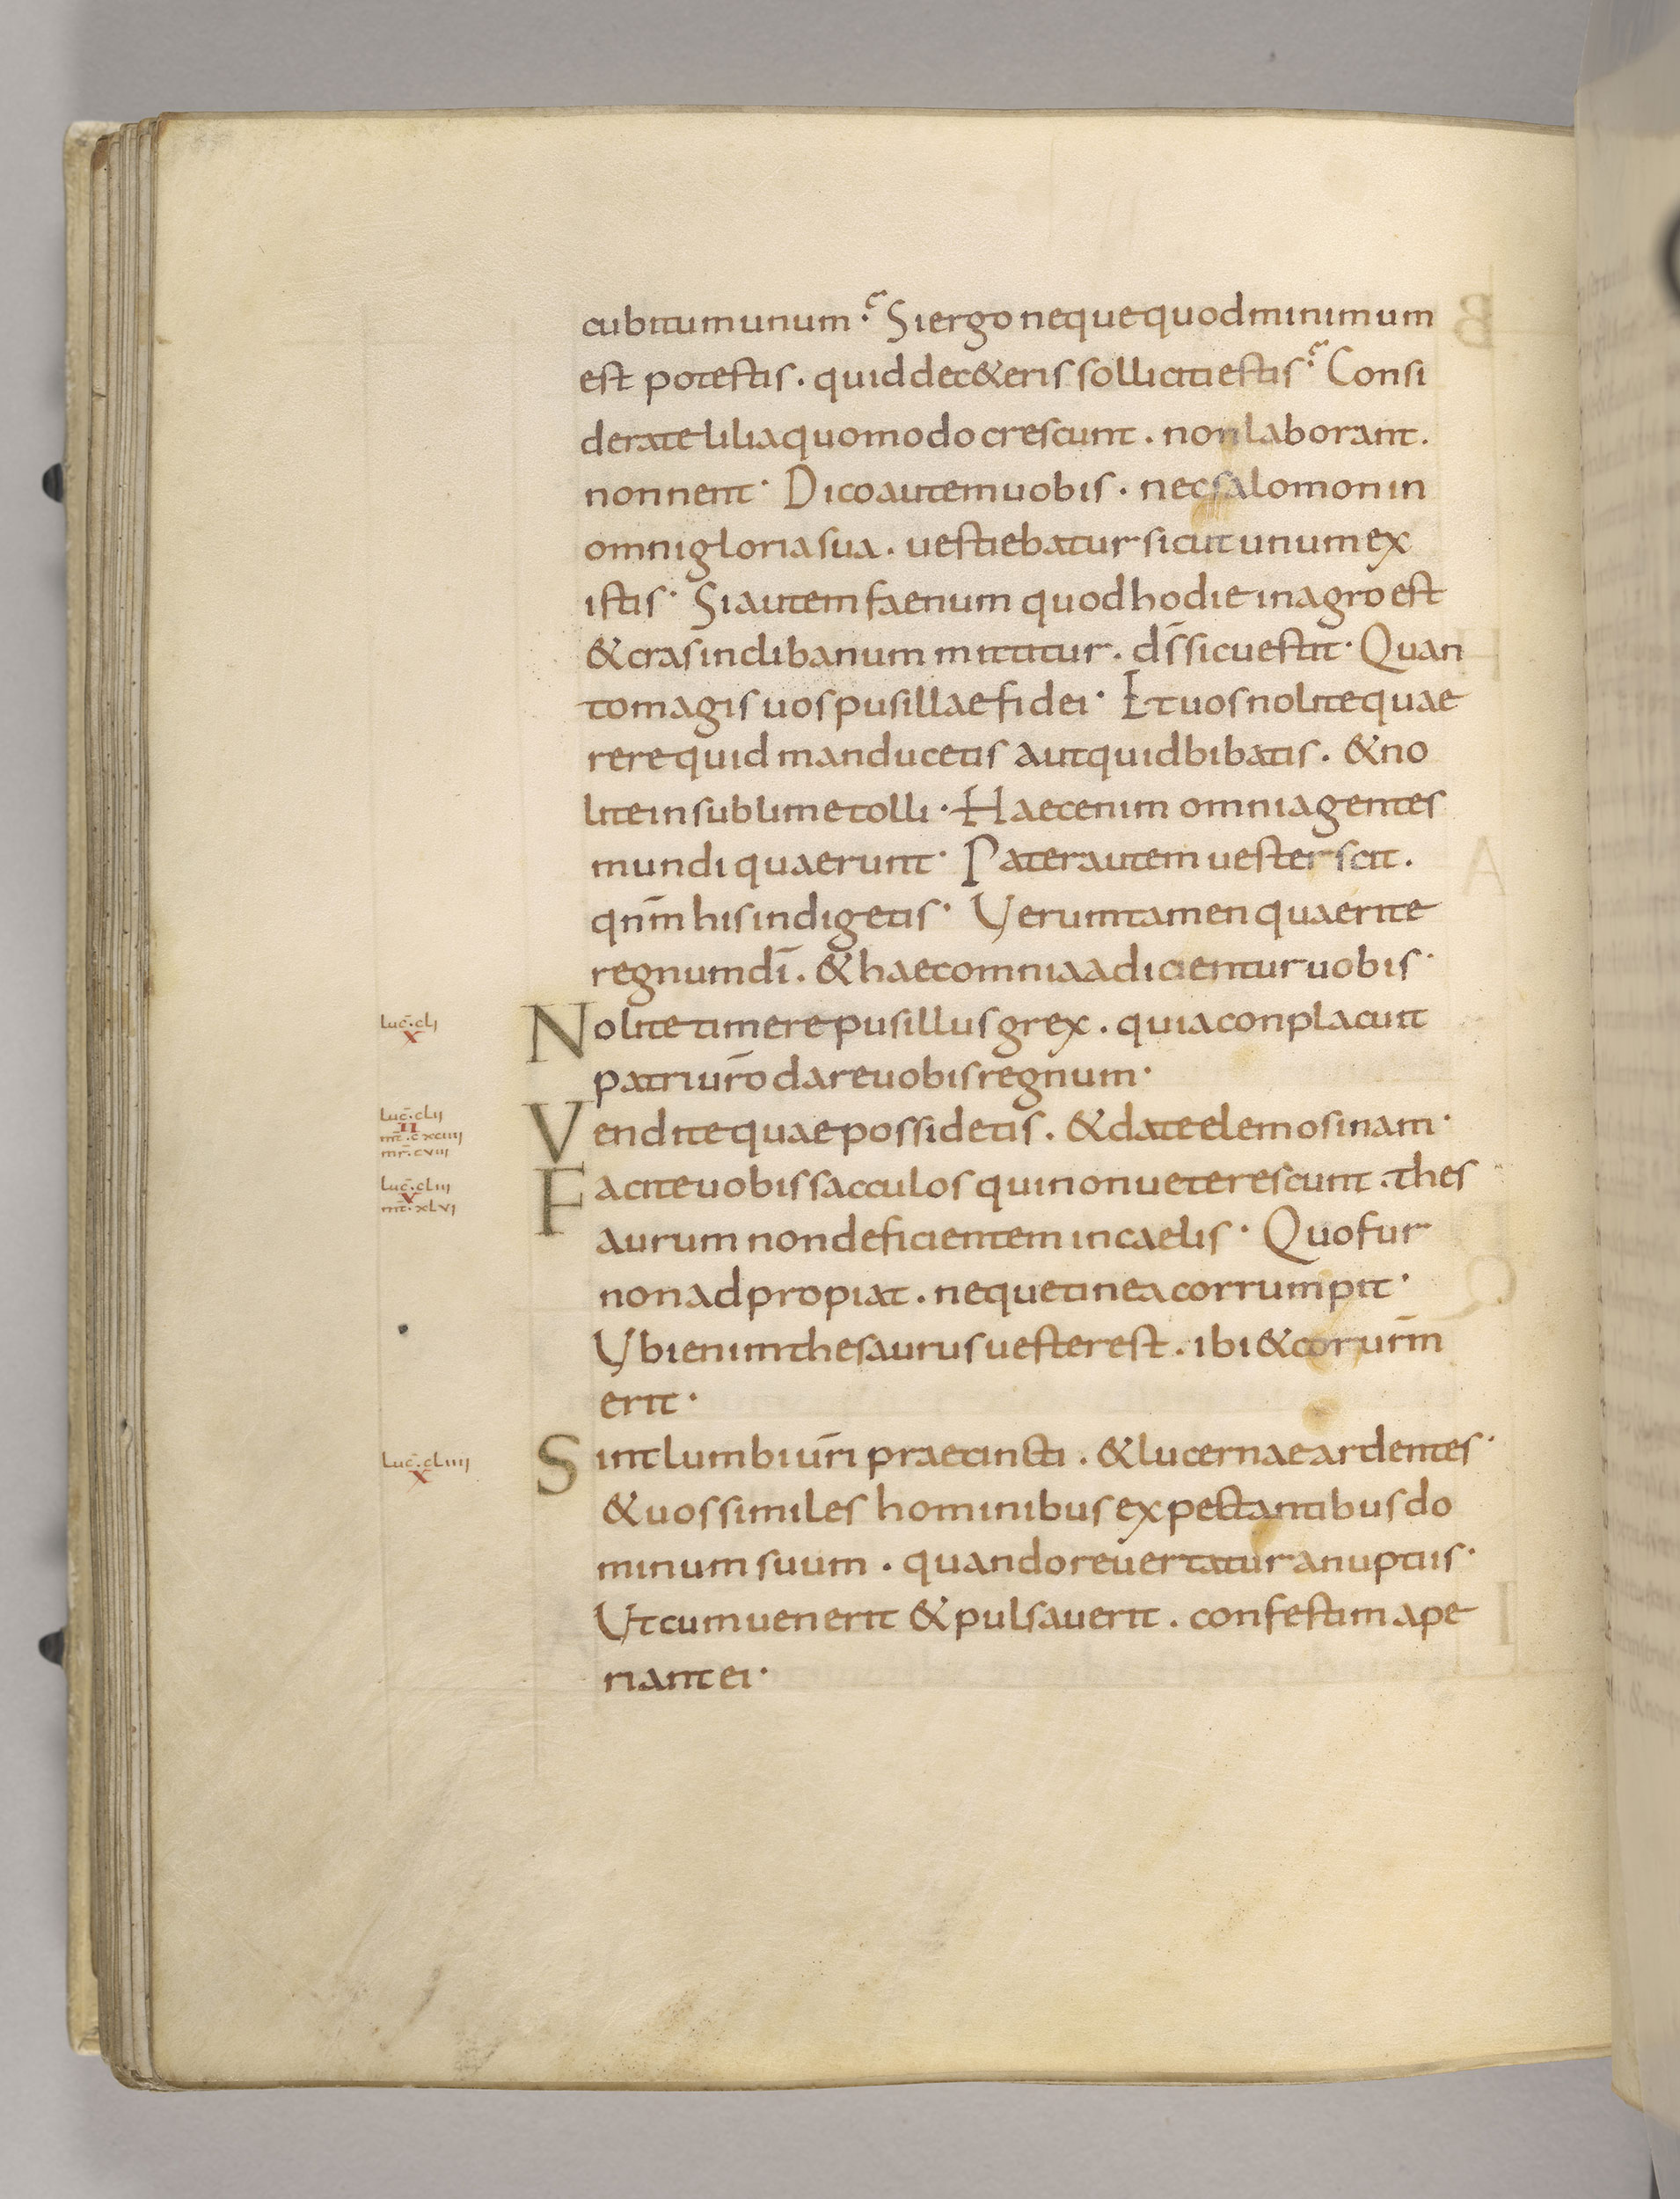 cubitum unum? Si ergo neque quod minimum
est potestis. quid de c&eris solliciti estis? Consi
derate lilia quomodo crescunt. non laborant.
non nent· Dico autem uobis. nec salomon in
omni gloria sua. uestiebatur sicut unum ex
istis· Si autem faenum quod hodie in agro est
& cras in clibanum mittitur. ds̄ sic uestit· Quan
to magis uos pusillae fidei· Et uos nolite quae
rere quid manducetis aut quid bibatis. & no
lite in sublime tolli· Haec enim omnia gentes
mundi quaerunt· Pater autem uester scit.
qnm̄ his indigetis· Verumtamen quaerite
regnum dī. & haec omnia adicientur uobis·
Luc̄. clı
X
Nolite timere pusillus grex. quia conplacuit
patri ur̄o dare uobis regnum·
Luc̄. clıı
II
mt̄. cxcıııı
mr̄. cvııı
Vendite quae possidetis. & date elemosinam·
Luc̄. clııı
V
mt̄. xlvı
Facite uobis sacculos qui non ueterescunt. thes
aurum non deficientem in caelis· Quo fur
non adpropiat. neque tinea corrumpit·
Vbi enim thesaurus uester est. ibi & cor urm̄
erit·
Luc̄. clıııı
X
Sint lumbi ur̄i praecincti. & lucernae ardentes·
& uos similes hominibus expectantibus do
minum suum. quando reuertatur a nuptiis·
Vt cum uenerit & pulsauerit. confestim ape
riant ei·